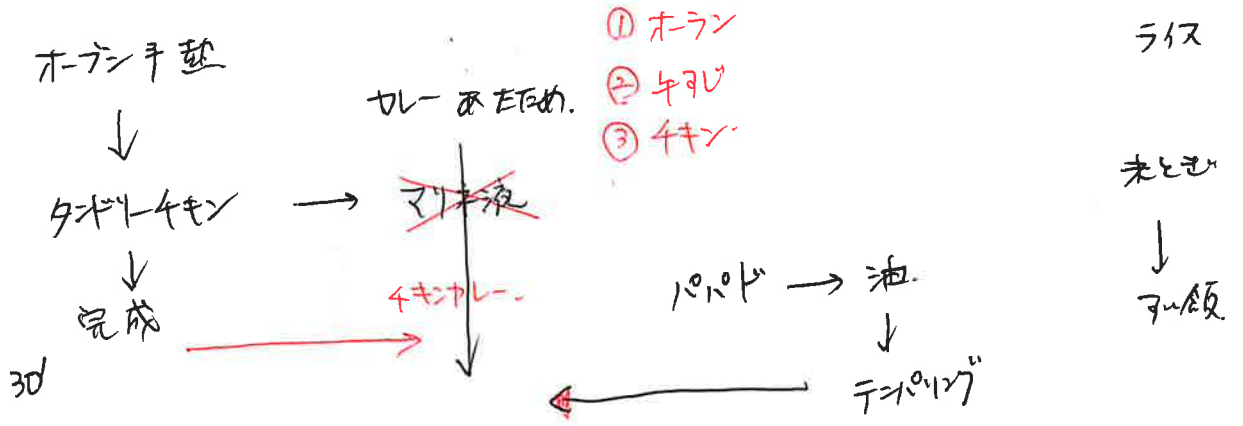 オーブン予熱
↓
タンドリーチキン → マリネ液
↓
完成
30'
カレーあたため.
チキンカレー.
① オーラン
② 牛すじ
③ チキン.
パパド → 油.
↓
テンパリング
ライス
米とぎ
↓
すい飯